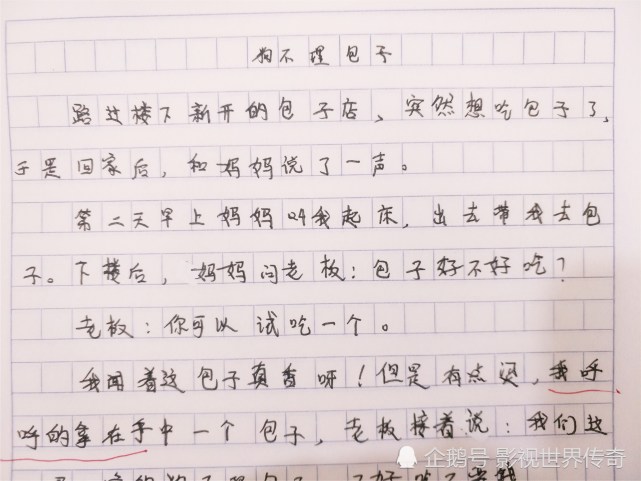 狗不理包子
路过楼下新开的包子店，突然想吃包子了，
于是回家后，和妈妈说了一声。
第二天早上妈妈叫我起床，出去带我去包
子。下楼后，妈妈问老板：包子好不好吃？
老板：你可以试吃一个。
我闻着这包子真香呀！但是有点烫，我呼
呼的拿在手中一个包子，老板接着说：我们这
企鹅号 影视世界传奇